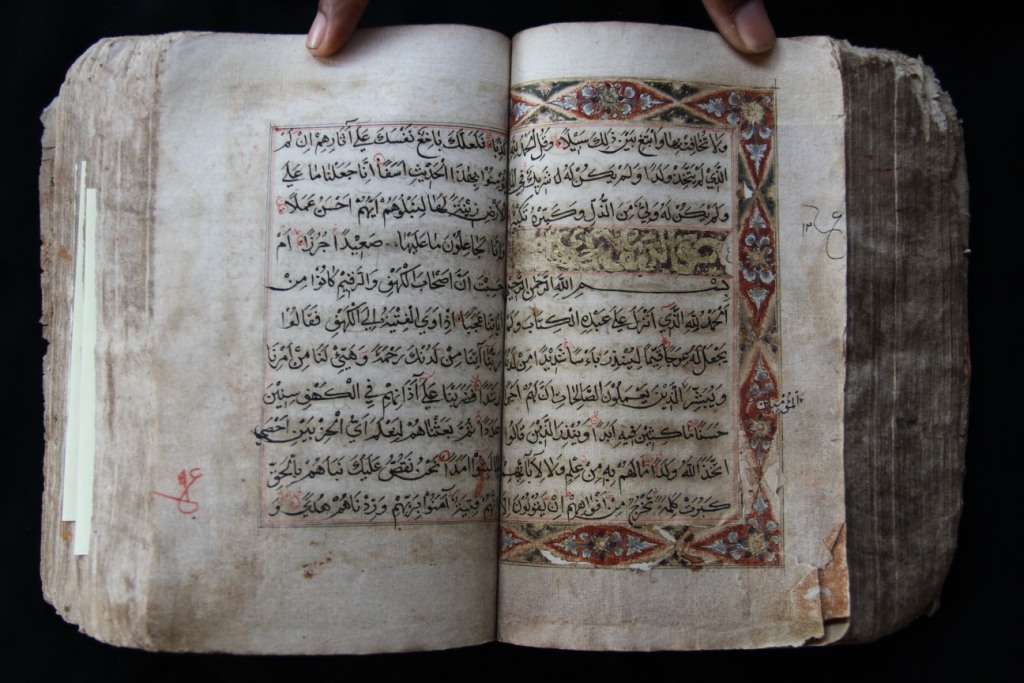 ولا تخافت بها وابتغ بين ذلك سبيلا وقل الحمد لله
الذي لم يتخذ ولدا ولم يكن له شريك في
ولم يكن له ولي من الذل وكبره تكبيرا
بسم الله الرحمن الرحيم
الحمد لله الذي انزل على عبده الكتاب ولم
يجعل له عوجا قيما لينذر باسا شديدا من لدنه
ويبشر الذين يعملون الصالحات ان لهم اجرا
المؤمنين
حسنا ماكثين فيه ابدا وينذر الذين قالوا
اتخذ الله ولدا ما لهم به من علم ولا لآبائهم
كبرت كلمة تخرج من افواههم ان يقولون الا
كذبا فلعلك باخع نفسك على آثارهم ان لم
يؤمنوا بهذا الحديث اسفا انا جعلنا ما على
الارض زينة لها لنبلوهم ايهم احسن عملا
وانا لجاعلون ما عليها صعيدا جرزا ام
حسبت ان اصحاب الكهف والرقيم كانوا من
آياتنا عجبا اذ اوى الفتية الى الكهف فقالوا
ربنا آتنا من لدنك رحمة وهيئ لنا من امرنا
رشدا فضربنا على آذانهم في الكهف سنين
عددا ثم بعثناهم لنعلم اي الحزبين احصى
لما لبثوا امدا نحن نقص عليك نباهم بالحق
انهم فتية آمنوا بربهم وزدناهم هدى و